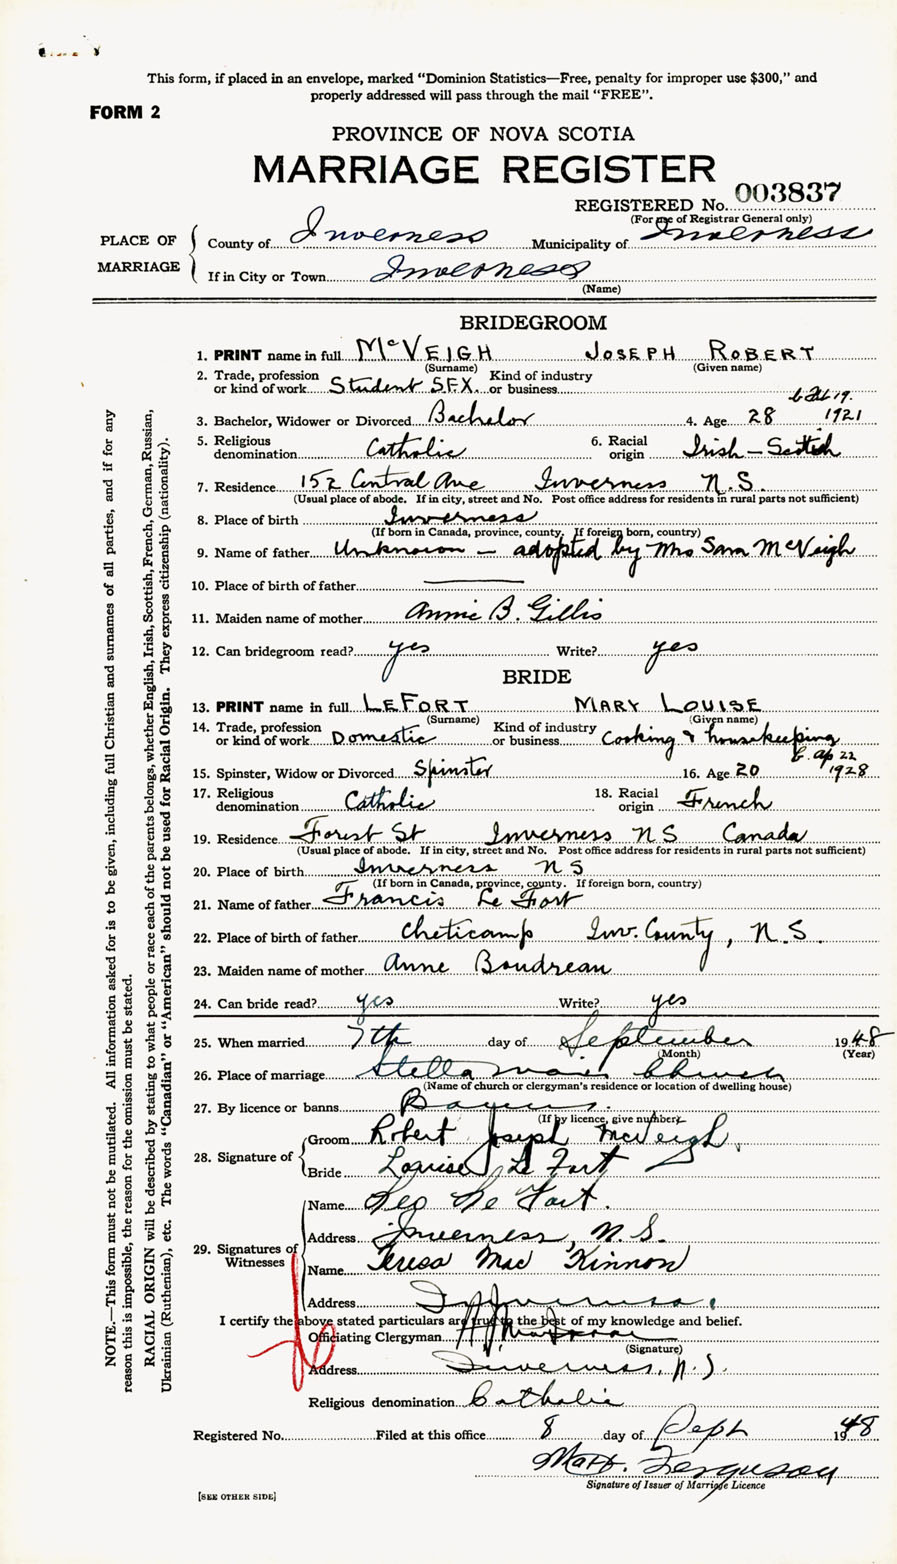 This form, if placed in an envelope, marked “Dominion Statistics—Free, penalty for improper use $300,” and
properly addressed will pass through the mail “FREE”.
FORM 2
PROVINCE OF NOVA SCOTIA
MARRIAGE REGISTER
REGISTERED No. 003837
(For use of Registrar General only)
PLACE OF MARRIAGE
County of Inverness Municipality of Inverness
If in City or Town Inverness
(Name)
BRIDEGROOM
1. PRINT name in full McVEIGH JOSEPH ROBERT
(Surname) (Given name)
2. Trade, profession or kind of work Student S.F.X. Kind of industry or business
b Feb 19.
3. Bachelor, Widower or Divorced Bachelor 4. Age 28 1921
5. Religious denomination Catholic 6. Racial origin Irish – Scottish
7. Residence 152 Central Ave Inverness N.S.
(Usual place of abode. If in city, street and No. Post office address for residents in rural parts not sufficient)
8. Place of birth Inverness
(If born in Canada, province, county. If foreign born, country)
9. Name of father Unknown – adopted by Mrs Sara McVeigh
10. Place of birth of father
11. Maiden name of mother Annie B. Gillis
12. Can bridegroom read? yes Write? yes
BRIDE
13. PRINT name in full LEFORT MARY LOUISE
(Surname) (Given name)
14. Trade, profession or kind of work Domestic Kind of industry or business Cooking & housekeeping
b. Ap 22
15. Spinster, Widow or Divorced Spinster 16. Age 20 1928
17. Religious denomination Catholic 18. Racial origin French
19. Residence Forest St Inverness NS Canada
(Usual place of abode. If in city, street and No. Post office address for residents in rural parts not sufficient)
20. Place of birth Inverness NS
(If born in Canada, province, county. If foreign born, country)
21. Name of father Francis Le Fort
22. Place of birth of father Cheticamp Inv. County, N.S.
23. Maiden name of mother Anne Boudreau
24. Can bride read? yes Write? yes
25. When married 7th day of September 1948
(Month) (Year)
26. Place of marriage Stella Maris Church
(Name of church or clergyman's residence or location of dwelling house)
27. By licence or banns Banns.
(If by licence, give number)
28. Signature of
Groom Robert Joseph McVeigh
Bride Louise Le Fort
29. Signatures of Witnesses
Name Leo Le Fort.
Address Inverness, N.S.
Name Teresa Mac Kinnon
Address Inverness.
I certify the above stated particulars are true to the best of my knowledge and belief.
Officiating Clergyman
(Signature)
Address Inverness, N.S.
Religious denomination Catholic
Registered No. Filed at this office 8 day of Sept 1948
Matt. Ferguson
Signature of Issuer of Marriage Licence
[SEE OTHER SIDE]
NOTE.—This form must not be mutilated. All information asked for is to be given, including full Christian and surnames of all parties, and if for any
reason this is impossible, the reason for the omission must be stated.
RACIAL ORIGIN will be described by stating to what people or race each of the parents belongs, whether English, Irish, Scottish, French, German, Russian,
Ukrainian (Ruthenian), etc. The words “Canadian” or “American” should not be used for Racial Origin. They express citizenship (nationality).